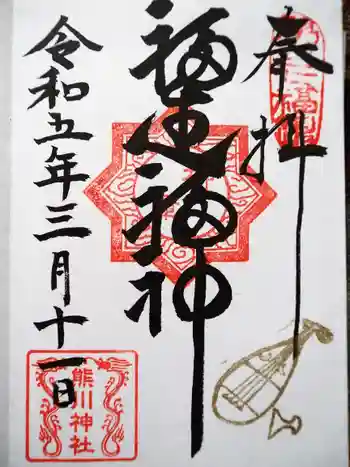 奉拝
福生七福神
令和五年三月十一日
熊川神社